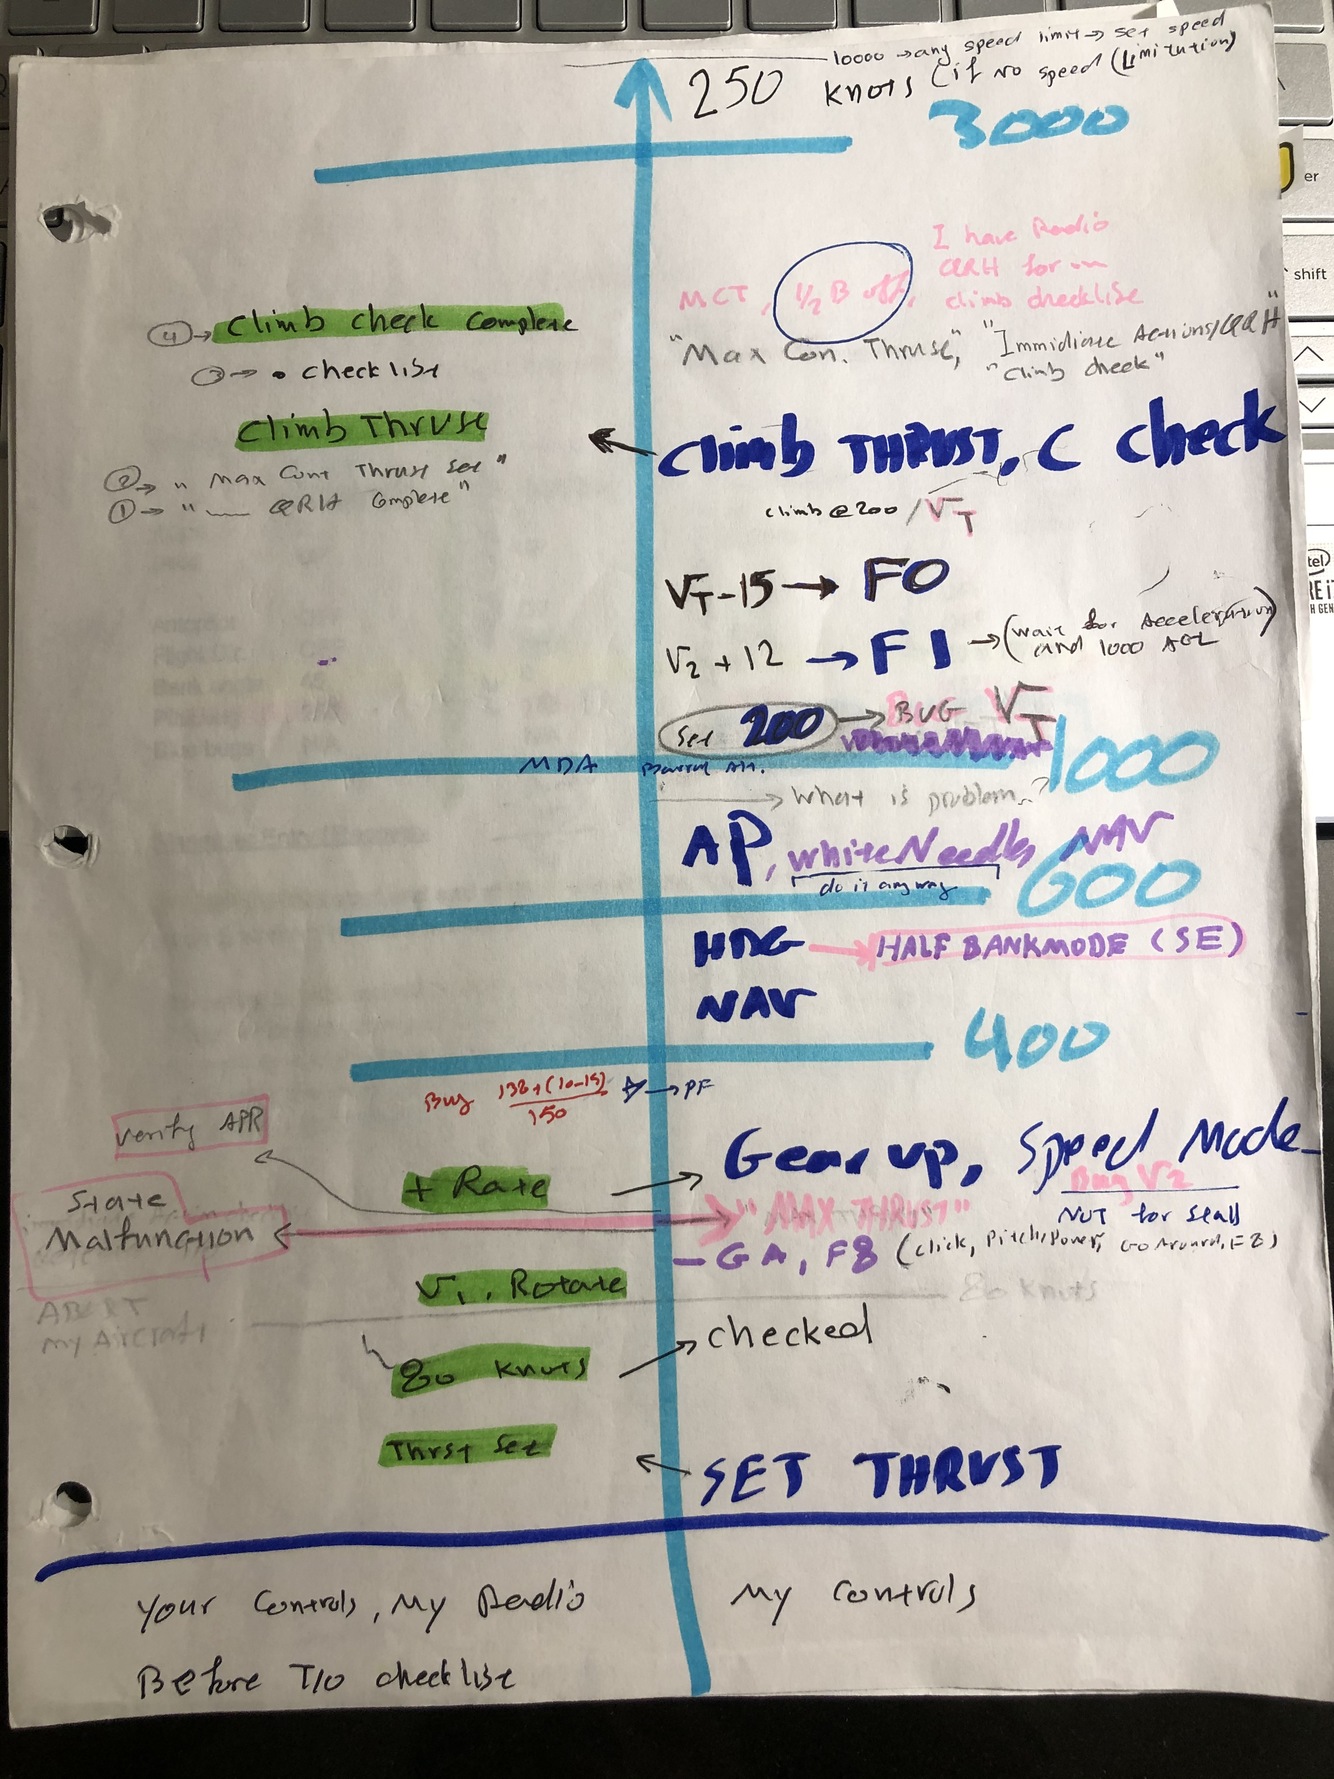 10000 → any speed limit → set speed
250 knots (if no speed (Limitation)
3000
I have Radio
QRH for
MCT, 1/2 B off, climb checklise
④→ Climb check Complete
"Max Con. Thruse," "Immidiate Actions/QRH"
"Climb check"
③→ • checklist
Climb Thruse
← Climb THRUST, C check
②→ " Max Cont Thrust Set "
①→ "__ QRH Complete"
climb @ 200 / VT
VT-15 → FO
V2 + 12 → F1 → (wait for Acceleration
and 1000 AGL
Set 200 → BUG VT
MDA
1000
→ What is problem?
AP, white Needles NAV
do it anyway
600
HDG → HALF BANKMODE (SE)
NAV
400
Bug 138+(10-15)
150
→ PF
Verify APR
Gear up, Speed Mode
+ Rate →
Bug V2
State
Malfunction
"MAX THRUST"
NOT for Stall
- GA, F8 (click, Pitch/Power, Go Around, F8)
V1, Rotate
80 knots
ABORT
my Aircraft
80 knots → checked
Thrst Set
← SET THRUST
Your Controls, My Radio
My Controls
Before T/O checklist
shift
er